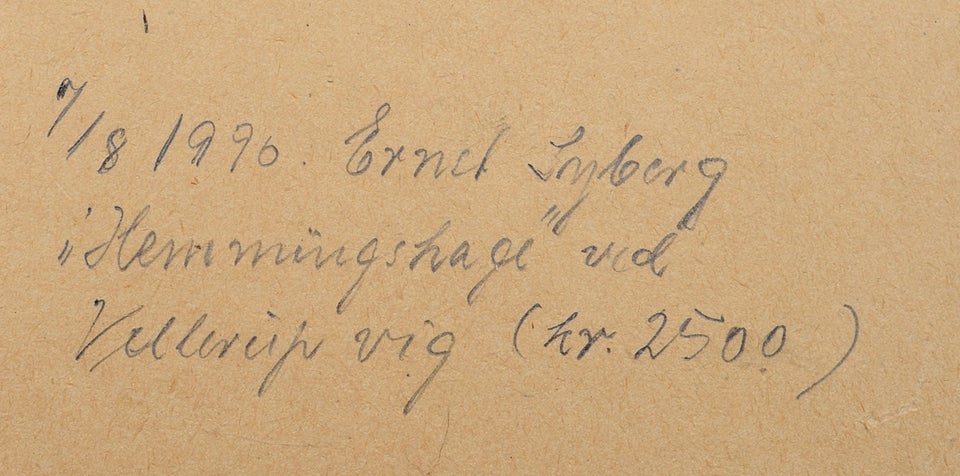 7/8 1990. Ernst Syberg
„Hemmingshage" ved
Vellerup vig (kr. 2500)